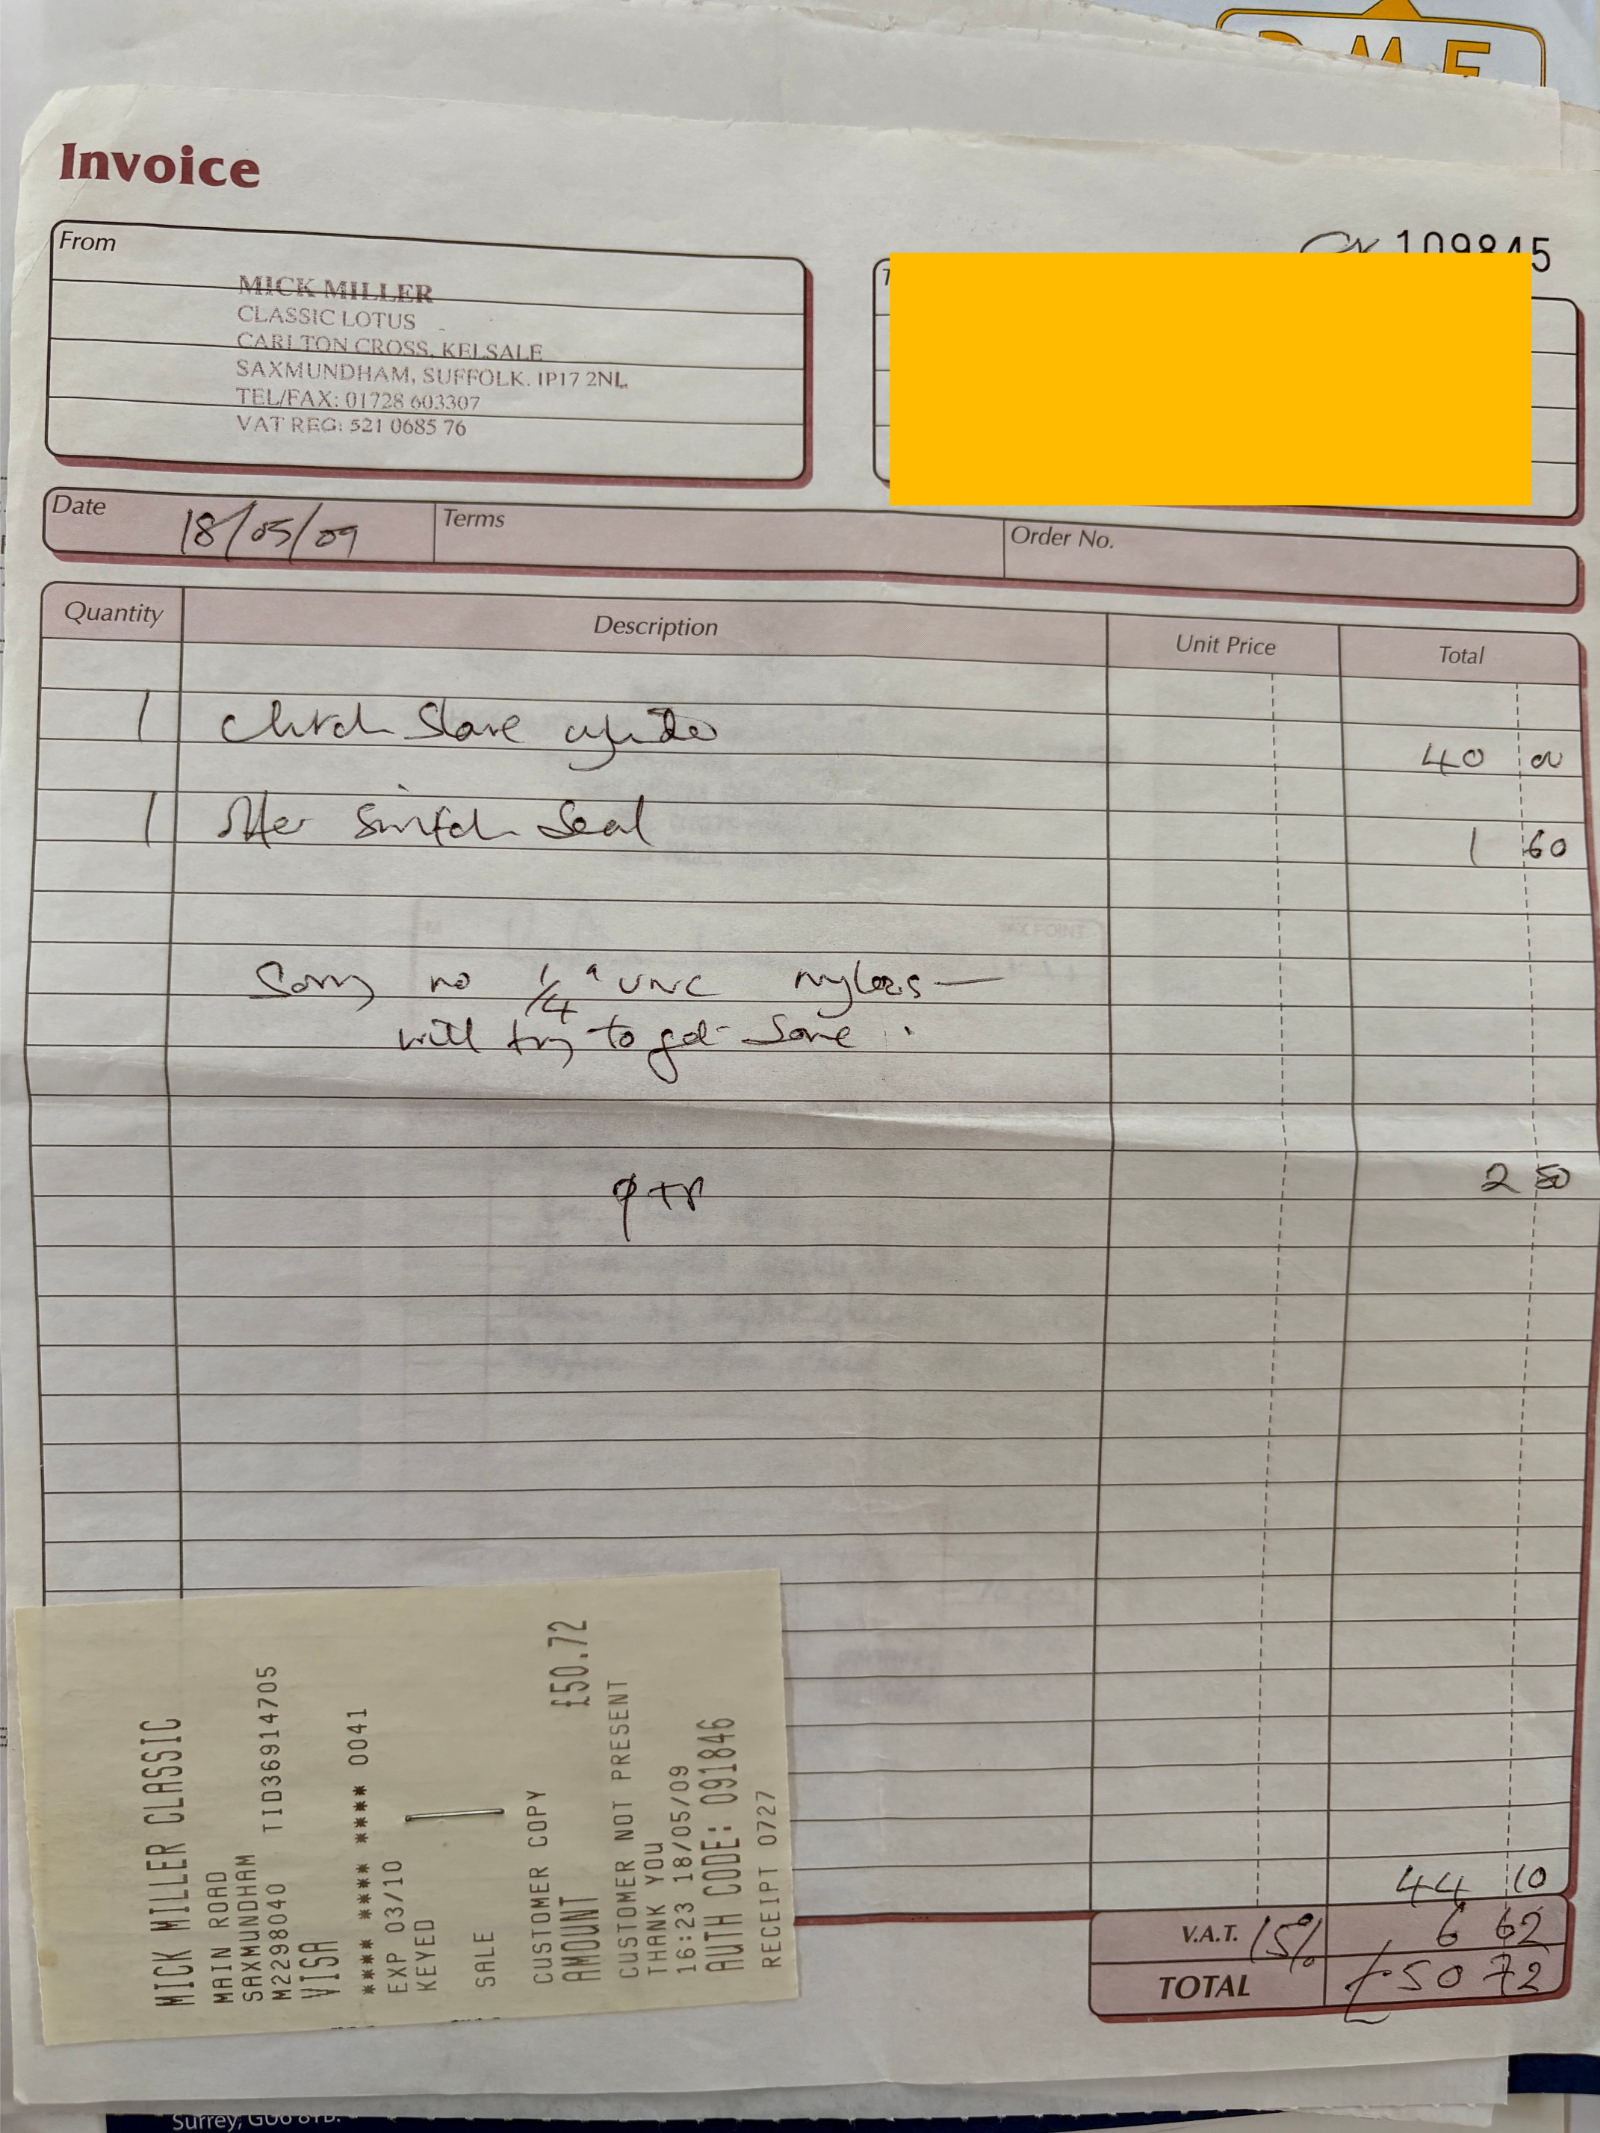 Invoice
109845
From
MICK MILLER
CLASSIC LOTUS
CARLTON CROSS, KELSALE
SAXMUNDHAM, SUFFOLK. IP17 2NL
TEL/FAX: 01728 603307
VAT REG: 521 0685 76
Date 18/05/09 Terms Order No.
Quantity Description Unit Price Total
1 Clutch Slave cylinder 40 00
1 Switch Seal 1 60
Sorry no 1/4" UNC nylocs —
will try to get some.
p+p 2 50
44 10
V.A.T. 15% 6 62
TOTAL £50 72
MICK MILLER CLASSIC
MAIN ROAD
SAXMUNDHAM
M2298040 TID36914705
VISA
**** **** **** 0041
EXP 03/10
KEYED
SALE
CUSTOMER COPY
AMOUNT £50.72
CUSTOMER NOT PRESENT
THANK YOU
16:23 18/05/09
AUTH CODE: 091846
RECEIPT 0727
Surrey,